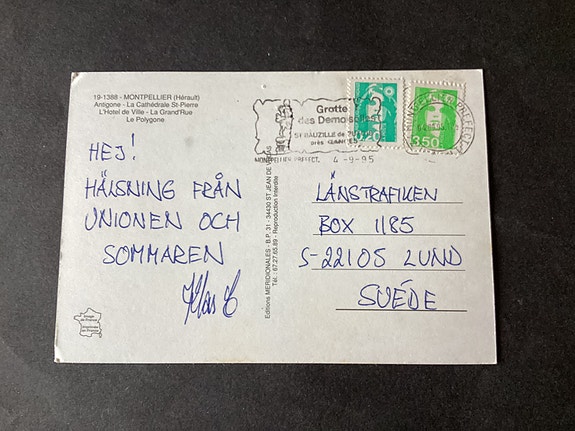 19-1388 - MONTPELLIER (Hérault)
Antigone - La Cathédrale St-Pierre
L'Hotel de Ville - La Grand'Rue
Le Polygone
HEJ!
HÄLSNING FRÅN
UNIONEN OCH
SOMMAREN
Image
de France
Imprimée
en France
Editions MERIDIONALES - B.P. 31 - 34430 ST JEAN DE VEDAS
Tél.: 67.27.65.89 - Reproduction Interdite
Grotte
des Demoiselles
ST BAUZILLE de
près GANGES
MONTPELLIER PREFECT. 4-9-95
0,20
3,50
LÄNSTRAFIKEN
BOX 1185
S-22105 LUND
SUÈDE